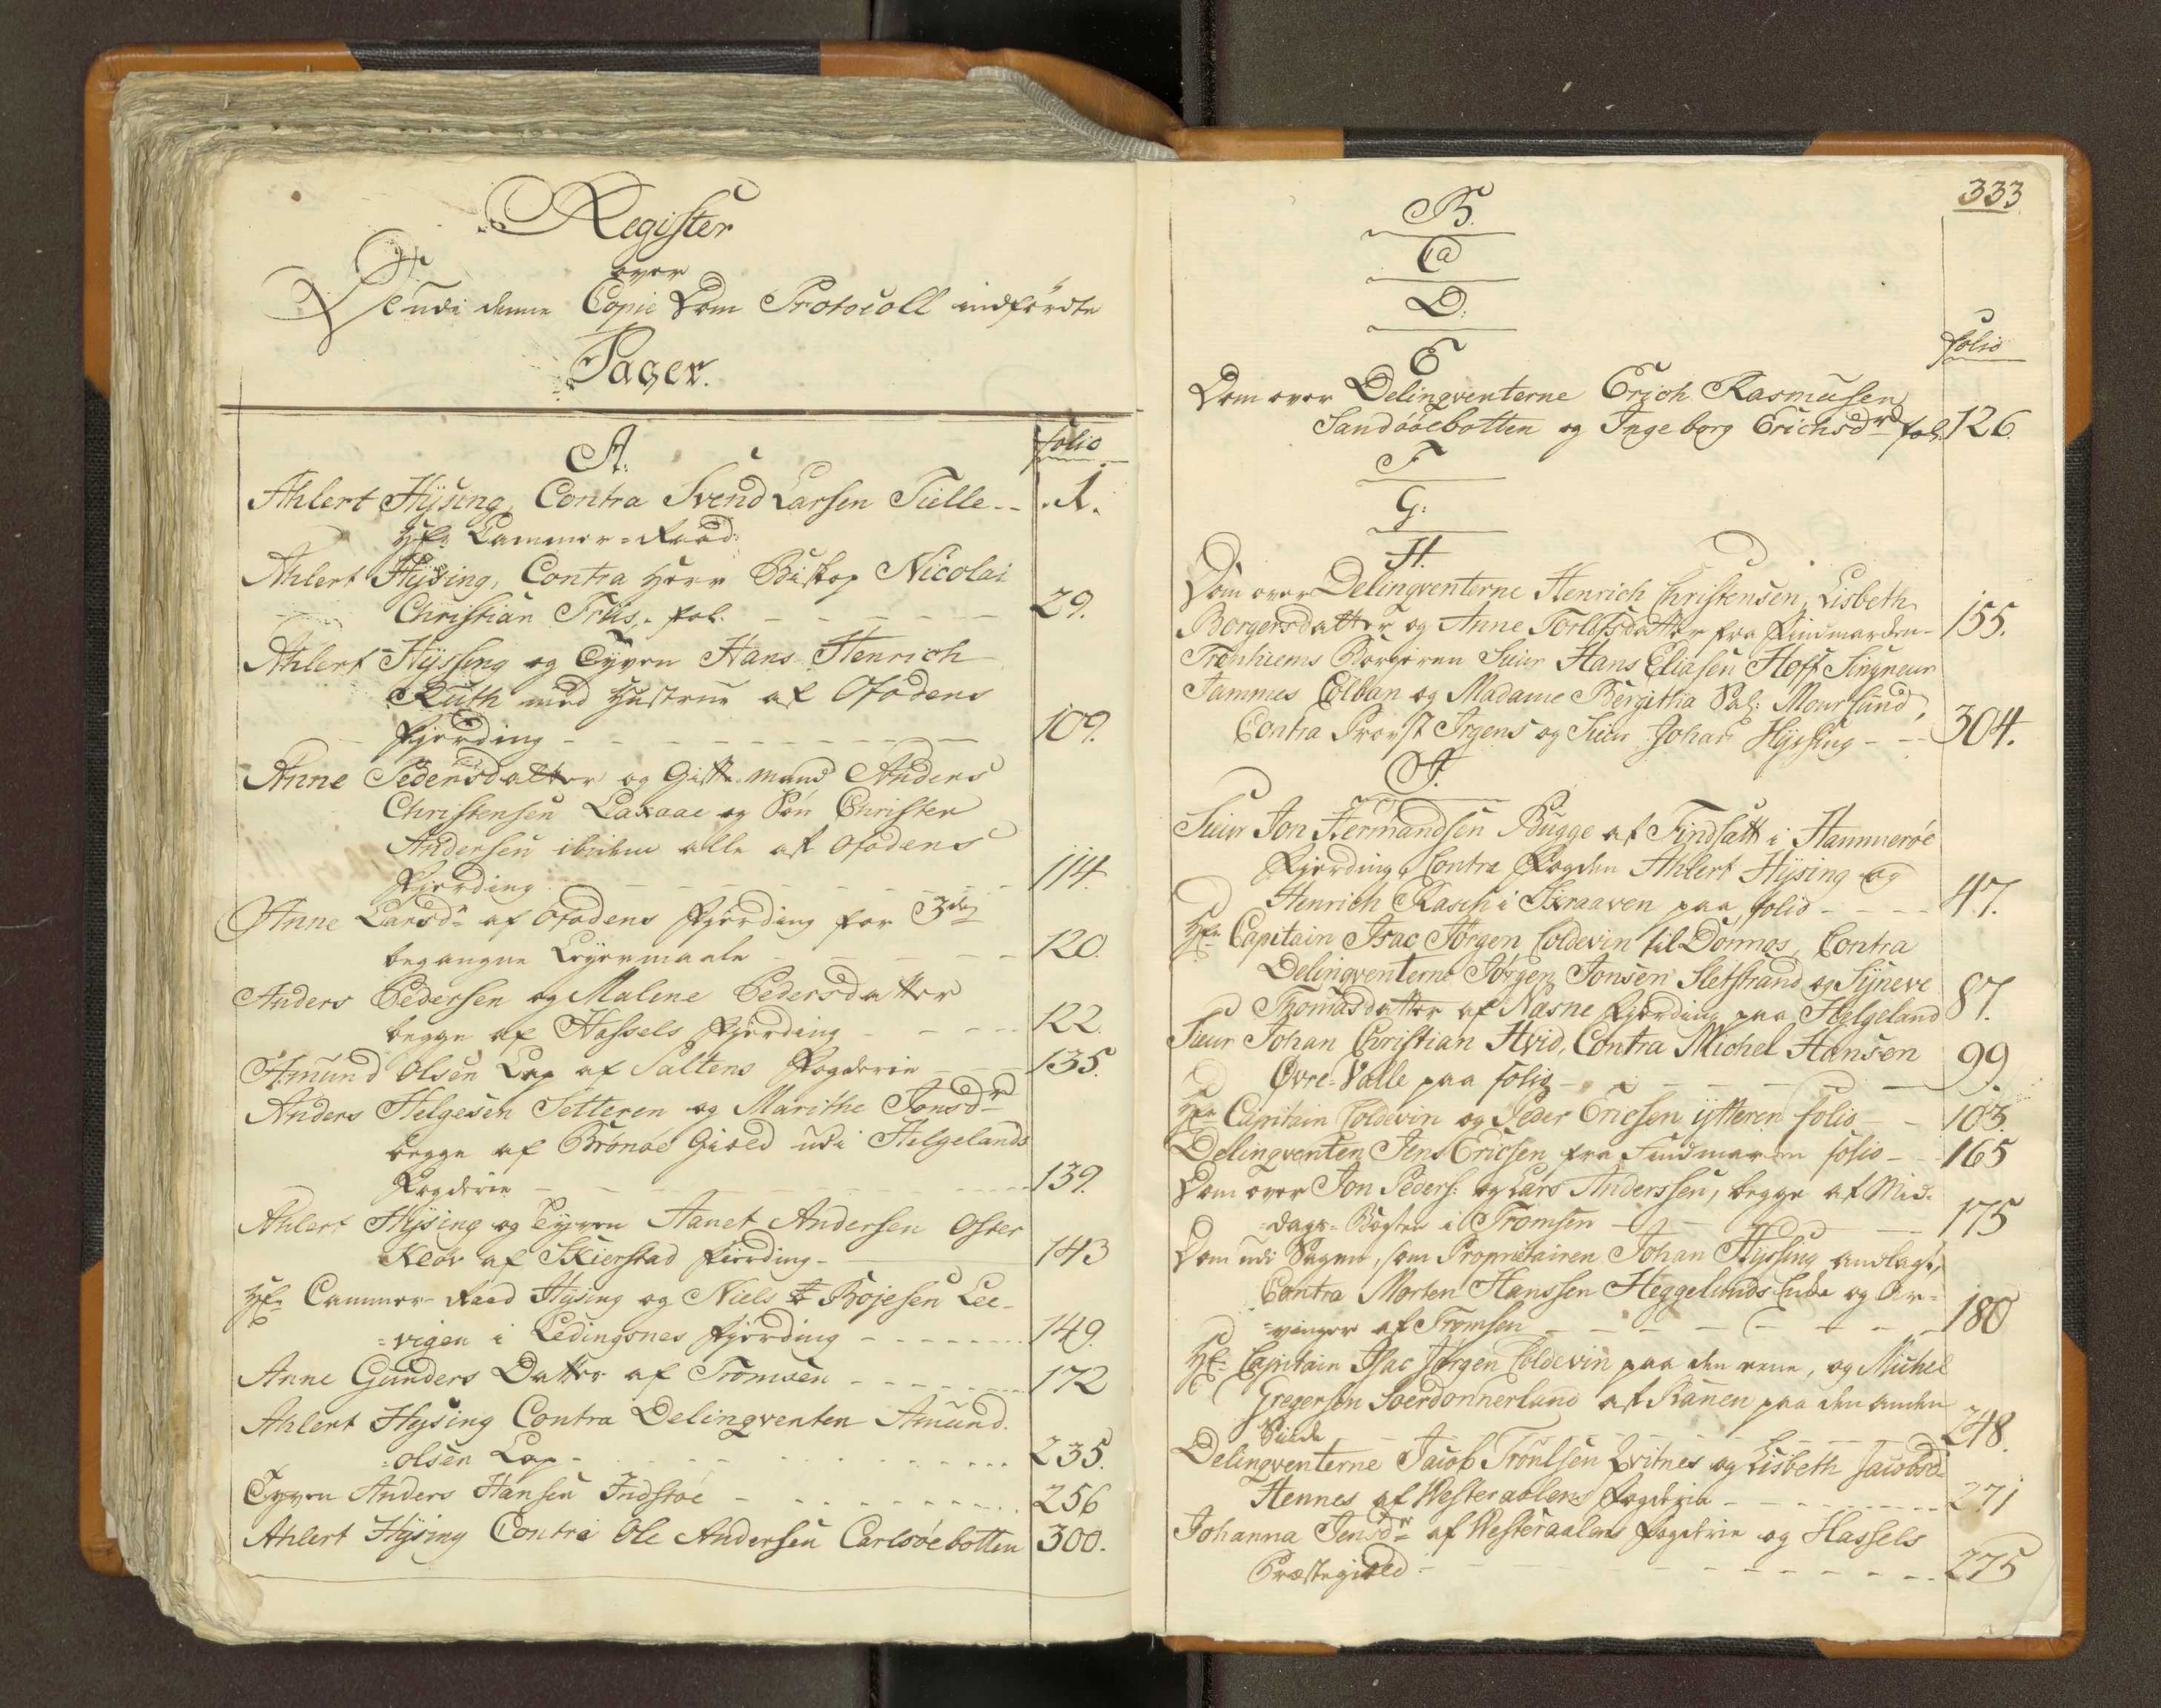 Register
over
De udi denne Copie Dom Protocoll indførdte
Sager.
A.
folio
Ahlert Hÿsing, Contra Svend Larsen Tielle -- 1.
Hr. Cammer-Raad
Ahlert Hÿsing, Contra Herr Biskop Nicolai
Christian Friis, fol. 29.
Ahlert Hÿssing og Tyven Hans Henrich
Ruth med Hustrue af Ofodens
Fjerding 109.
Anne Pedersdatter og Gifte-Mand Anders
Christensen Laxaae og Søn Christen
Andersen ibidem alle af Ofodens
Fjerding 114.
Anne Larsdr. af Ofodens Fjerding for 3de
begangne Leyermaale 120.
Anders Pedersen og Malene Pedersdatter
begge af Hassels Fjerding 122.
Amund Olsen Lap af Saltens Fogderie 135.
Anders Helgesen Setteren og Marithe Jonsdr
begge af Brønøe Gield udi Helgelands
Fogderie 139.
Ahlert Hÿsing og Tyven Aanet Andersen Oster
Kløv af Skierstad Fierding 143
Hr. Cammer-Raad Hÿsing og Niels Bojesen Lee-
=vigen i Ledingsnes Fjerding 149.
Anne Gunders Datter af Tromsen 172
Ahlert Hÿsing Contra Delinqventen Amund
=olsen Lap 235.
Tyven Anders Hansen Indstøe 256
Ahlert Hÿsing Contra Ole Andersen Carlsøebotten 300.
333
B.
C
D.
E
folio
Dom over Delinqventerne Erich Rasmusen
Sandøöebotten og Ingeborg Erichsdr fol. 126.
F
G.
H.
Dom over Delinqventerne Henrich Christensen, Lisbeth
Borgersdatter og Anne Torlefsdatter fra Findmarden 155.
Tronhiems Borgeren Sieur Hans Eliasen Hoff Singneur
Jammes Colban og Madame Bergitha Sal: Moursund,
Contra Provst Irgens og Sieur Johan Hÿssing 304.
J.
Sieur Jon Hermandsen Bugge af Findsatt i Hammerøe
Fjerding, Contra Fogden Ahlert Hÿsing og
Henrich Rasch i Skraaven paa folio 47.
Hr. Capitain Isac Jørgen Coldevin til Dønnes, Contra
Delinqventerne Jørgen Jonsen Sletstrand og Sÿneve
Thomasdatter af Nasne Fjerding paa Helgeland 87.
Sieur Johan Christian Hvid, Contra Michel Hansen
Øvre-Valle paa folio 99.
Hr. Capitain Coldevin og Peder Ericsen ÿtteren folio 103.
Delinqventen Jens Ericsen fra Findmarken folio 165
Dom over Jon Peders: og Lars Anderssen, begge af Mid-
=dags-Bogten i Tromsen 175
Dom udi Sagen, som Proprietairen Johan Hÿssing anlagt,
Contra Morten Hanssen Heggelunds Enke og Ar-
=vinger af Tromsen 180
Hr. Capitain Isac Jørgen Coldevin paa den eene, og Michel
Gregersen Soerdonnerland af Ranen paa den anden
Siide 248.
Delinqventerne Jacob Trondsen Qvitnes og Lisbeth Jacobsd
Hennes af Westeraalens Fogderie 271
Johanna Jensdr af Westeraalens Fogderie og Hassels
Præstegield 275